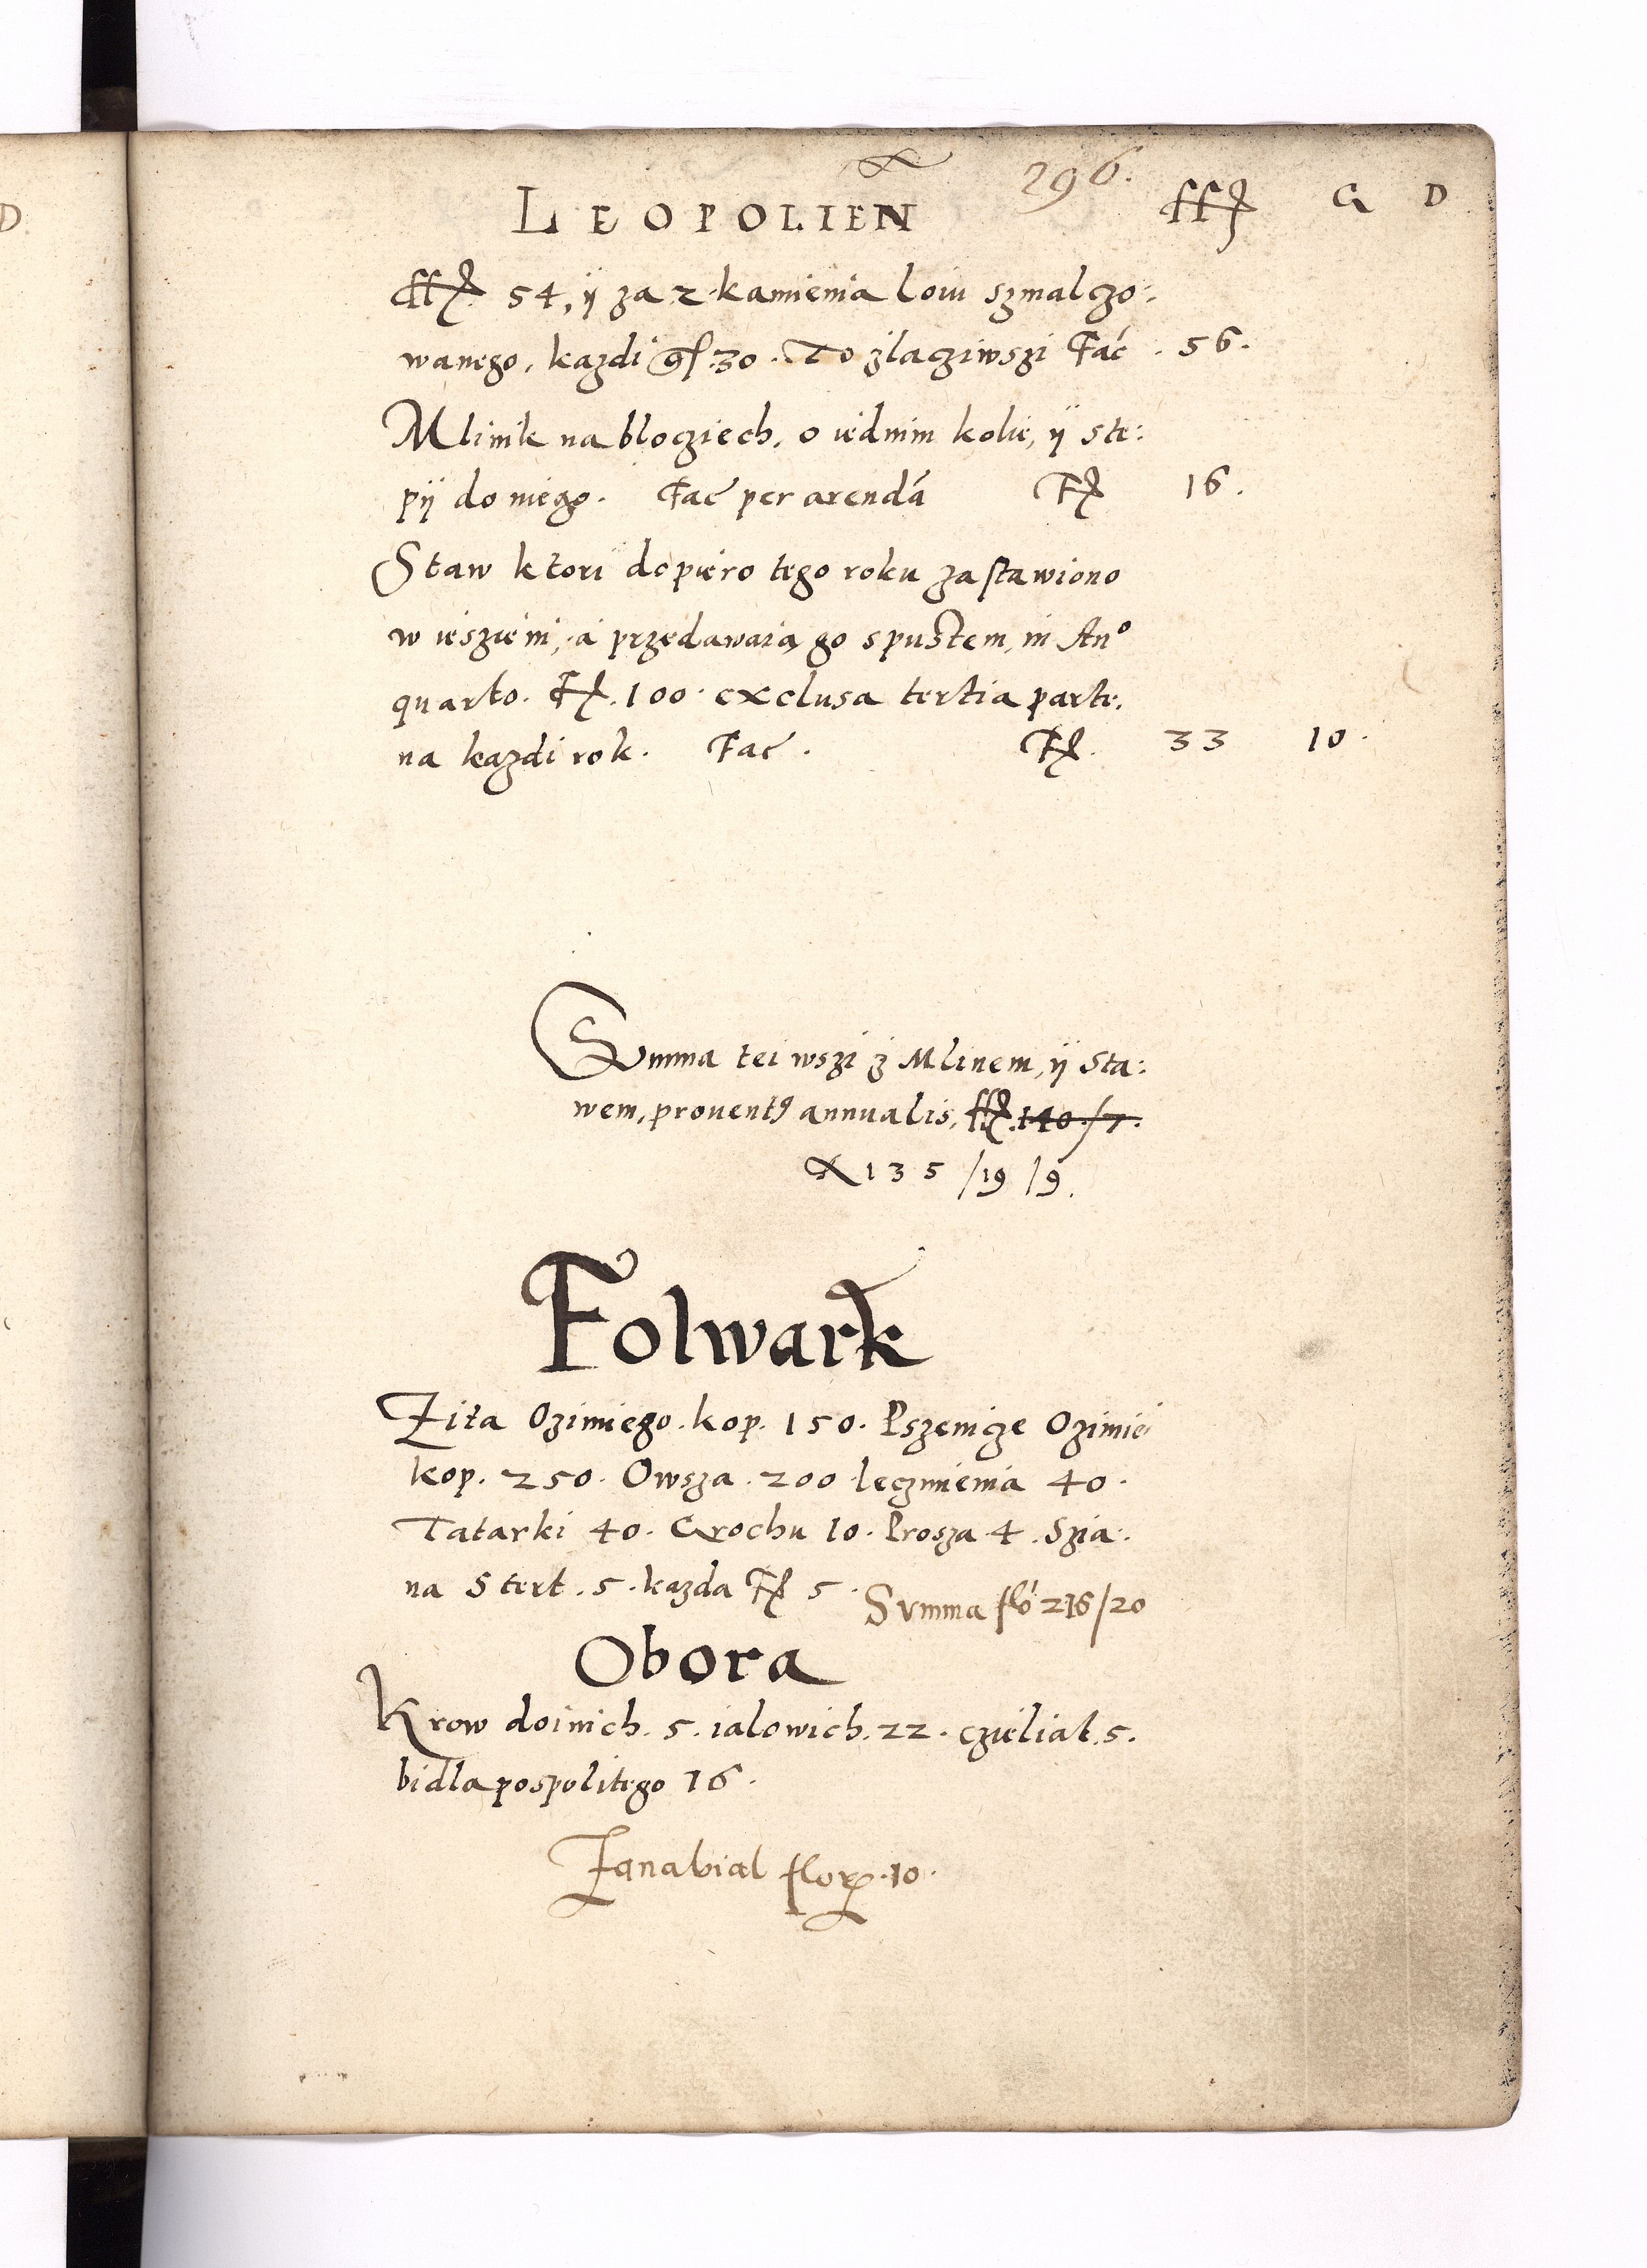 296.
LEOPOLIEN̄ ff G D
ff 54, ÿ za 2 kamienia loiu szmalczo:
wanego, kazdi gſ 30. To zlacziwszi Fać . 56.
Mlinik na blocziech, o iednim kolie, ÿ ste:
pÿ do niego. Fać per arendá Fl 16.
Staw ktori dopiero tego roku zastawiono
w ieszieni, a przedawaią go spustem, in An°
quarto. Fl. 100 exclusa tertia parte.
na kazdi rok. Fać. Fl. 33 10.
Summa tei wszi z Mlinem, ÿ Sta:
wem, prouent9 annualis, ff. 140/7.
135/19/9.
Folwark
Zita Ozimiego. kop. 150. Pszenicze Ozimiei
kop. 250. Owsza. 200 Ieczmienia 40.
Tatarki 40. Grochu 10. Prosza 4. Szia:
na Stert. 5. kazda Fl 5. Summa flo 216/20
Obora
Krow doinich. 5. ialowich. 22. czieliat. 5.
bidla pospolitego 16.
Zanabial flor. 10.